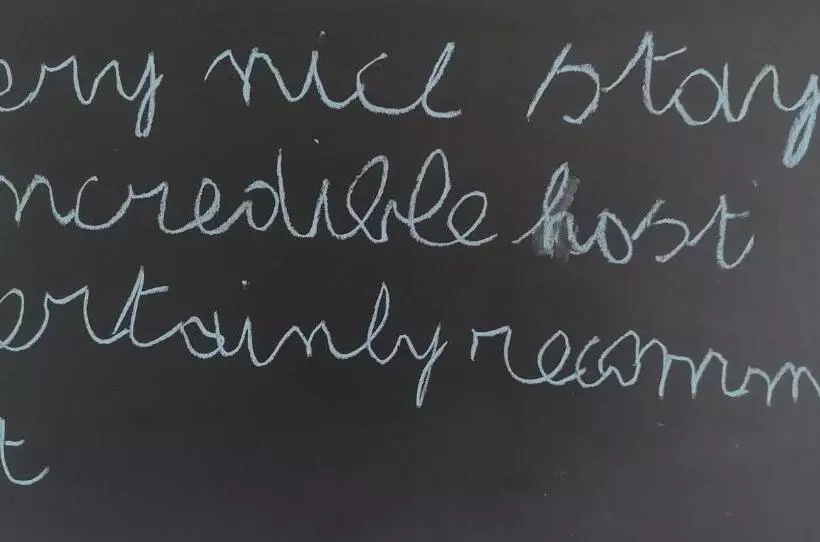 ery nice stay
ncredible host
ertainly recomm
t